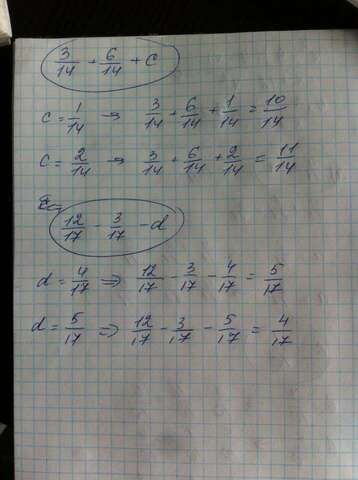 3/14 + 6/14 + c
c = 1/14 → 3/14 + 6/14 + 1/14 = 10/14
c = 2/14 → 3/14 + 6/14 + 2/14 = 11/14
12/17 - 3/17 - d
d = 4/17 ⇒ 12/17 - 3/17 - 4/17 = 5/17
d = 5/17 ⇒ 12/17 - 3/17 - 5/17 = 4/17